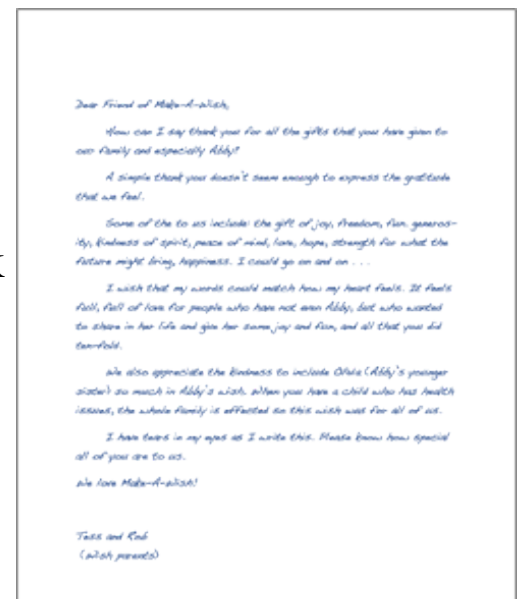 Dear Friend of Make-A-Wish,
How can I say thank you for all the gifts that you have given to
our family and especially Abby?
A simple thank you doesn't seem enough to express the gratitude
that we feel.
Some of the to us include: the gift of joy, freedom, fun, generos-
ity, kindness of spirit, peace of mind, love, hope, strength for what the
future might bring, happiness. I could go on and on . . .
I wish that my words could match how my heart feels. It feels
full, full of love for people who have not even Abby, but who wanted
to share in her life and give her some joy and fun, and all that you did
ten-fold.
We also appreciate the kindness to include (Abby's younger
sister) so much in Abby's wish. When you have a child who has health
issues, the whole family is effected so this wish was for all of us.
I have tears in my eyes as I write this. Please know how special
all of you are to us.
We love Make-A-Wish!
Tess and Rob
(wish parents)